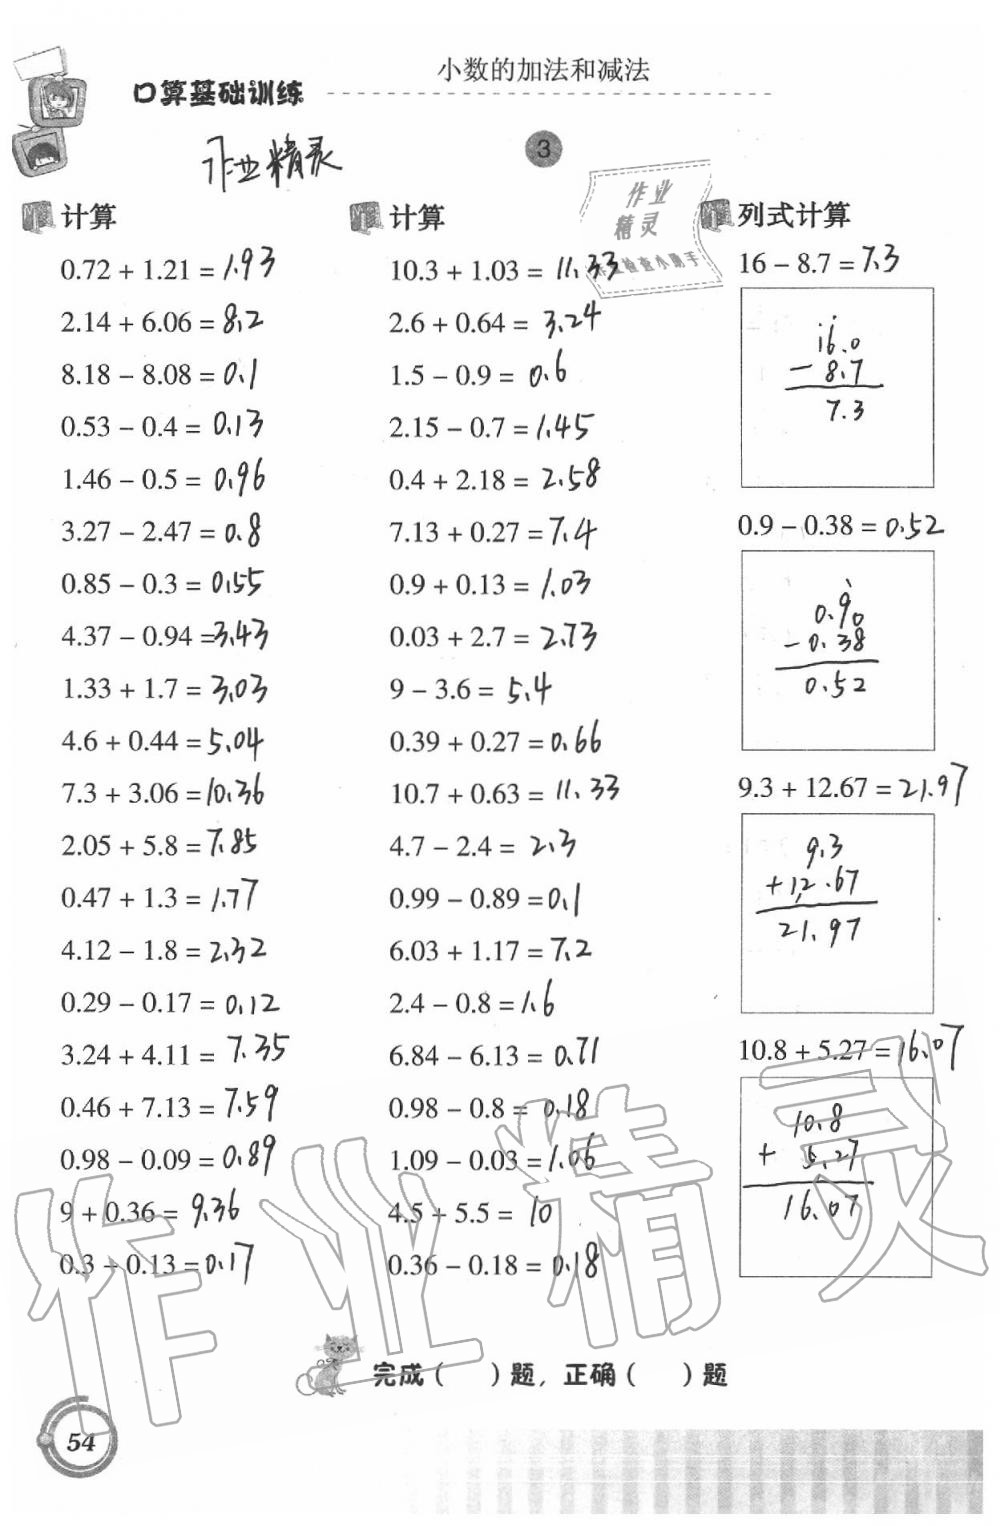 小数的加法和减法
口算基础训练
作业精灵
3
作业
精灵
作业检查小助手
计算
0.72 + 1.21 = 1.93
2.14 + 6.06 = 8.2
8.18 − 8.08 = 0.1
0.53 − 0.4 = 0.13
1.46 − 0.5 = 0.96
3.27 − 2.47 = 0.8
0.85 − 0.3 = 0.55
4.37 − 0.94 = 3.43
1.33 + 1.7 = 3.03
4.6 + 0.44 = 5.04
7.3 + 3.06 = 10.36
2.05 + 5.8 = 7.85
0.47 + 1.3 = 1.77
4.12 − 1.8 = 2.32
0.29 − 0.17 = 0.12
3.24 + 4.11 = 7.35
0.46 + 7.13 = 7.59
0.98 − 0.09 = 0.89
9 + 0.36 = 9.36
0.3 − 0.13 = 0.17
计算
10.3 + 1.03 = 11.33
2.6 + 0.64 = 3.24
1.5 − 0.9 = 0.6
2.15 − 0.7 = 1.45
0.4 + 2.18 = 2.58
7.13 + 0.27 = 7.4
0.9 + 0.13 = 1.03
0.03 + 2.7 = 2.73
9 − 3.6 = 5.4
0.39 + 0.27 = 0.66
10.7 + 0.63 = 11.33
4.7 − 2.4 = 2.3
0.99 − 0.89 = 0.1
6.03 + 1.17 = 7.2
2.4 − 0.8 = 1.6
6.84 − 6.13 = 0.71
0.98 − 0.8 = 0.18
1.09 − 0.03 = 1.06
4.5 + 5.5 = 10
0.36 − 0.18 = 0.18
列式计算
16 − 8.7 = 7.3
16.0
− 8.7
7.3
0.9 − 0.38 = 0.52
0.90
− 0.38
0.52
9.3 + 12.67 = 21.97
9.3
+ 12.67
21.97
10.8 + 5.27 = 16.07
10.8
+ 5.27
16.07
作业精灵
完成（ ）题，正确（ ）题
54